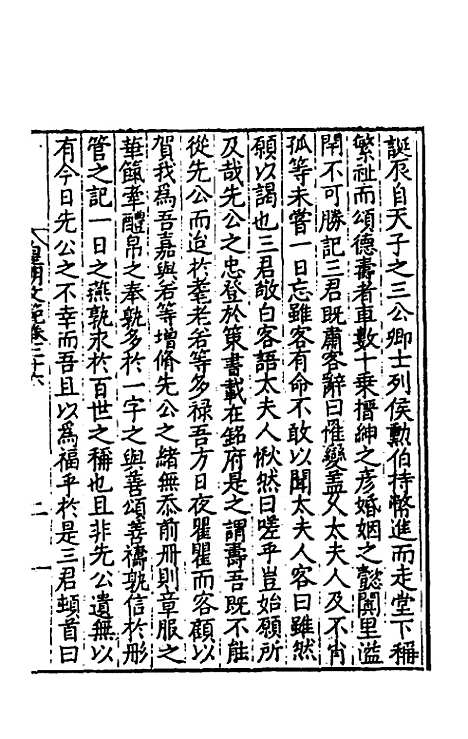 誕辰自天子之三公卿士列侯勳伯持幣進而走堂下稱
繁祉而頌德壽者車數十乗搢紳之彦婚姻之懿闐里溢
閈不可勝記三君既肅客辭曰惟變蓋太夫人及不肖
孤等未嘗一日忘雖客有命不敢以聞太夫人客曰雖然
願以謁也三君敬白客語太夫人愀然曰嗟乎豈始願所
及哉先公之忠登於策書載在銘府是之謂壽吾既不能
從先公而迨於耄老若等多禄吾方日夜瞿瞿而客顧以
賀我爲吾嘉與若等增脩先公之緒無忝前冊則章服之
華篚牽醴帛之奉孰多於一字之與善頌善禱孰信於彤
管之記一日之燕孰永於百世之稱也且非先公遺無以
有今日先公之不幸而吾且以爲福乎於是三君頓首曰
皇明文範卷三十六
二